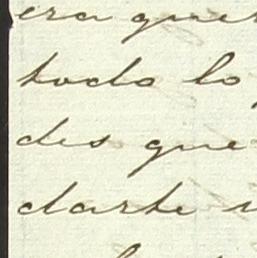 era que
todo lo
des que
darte